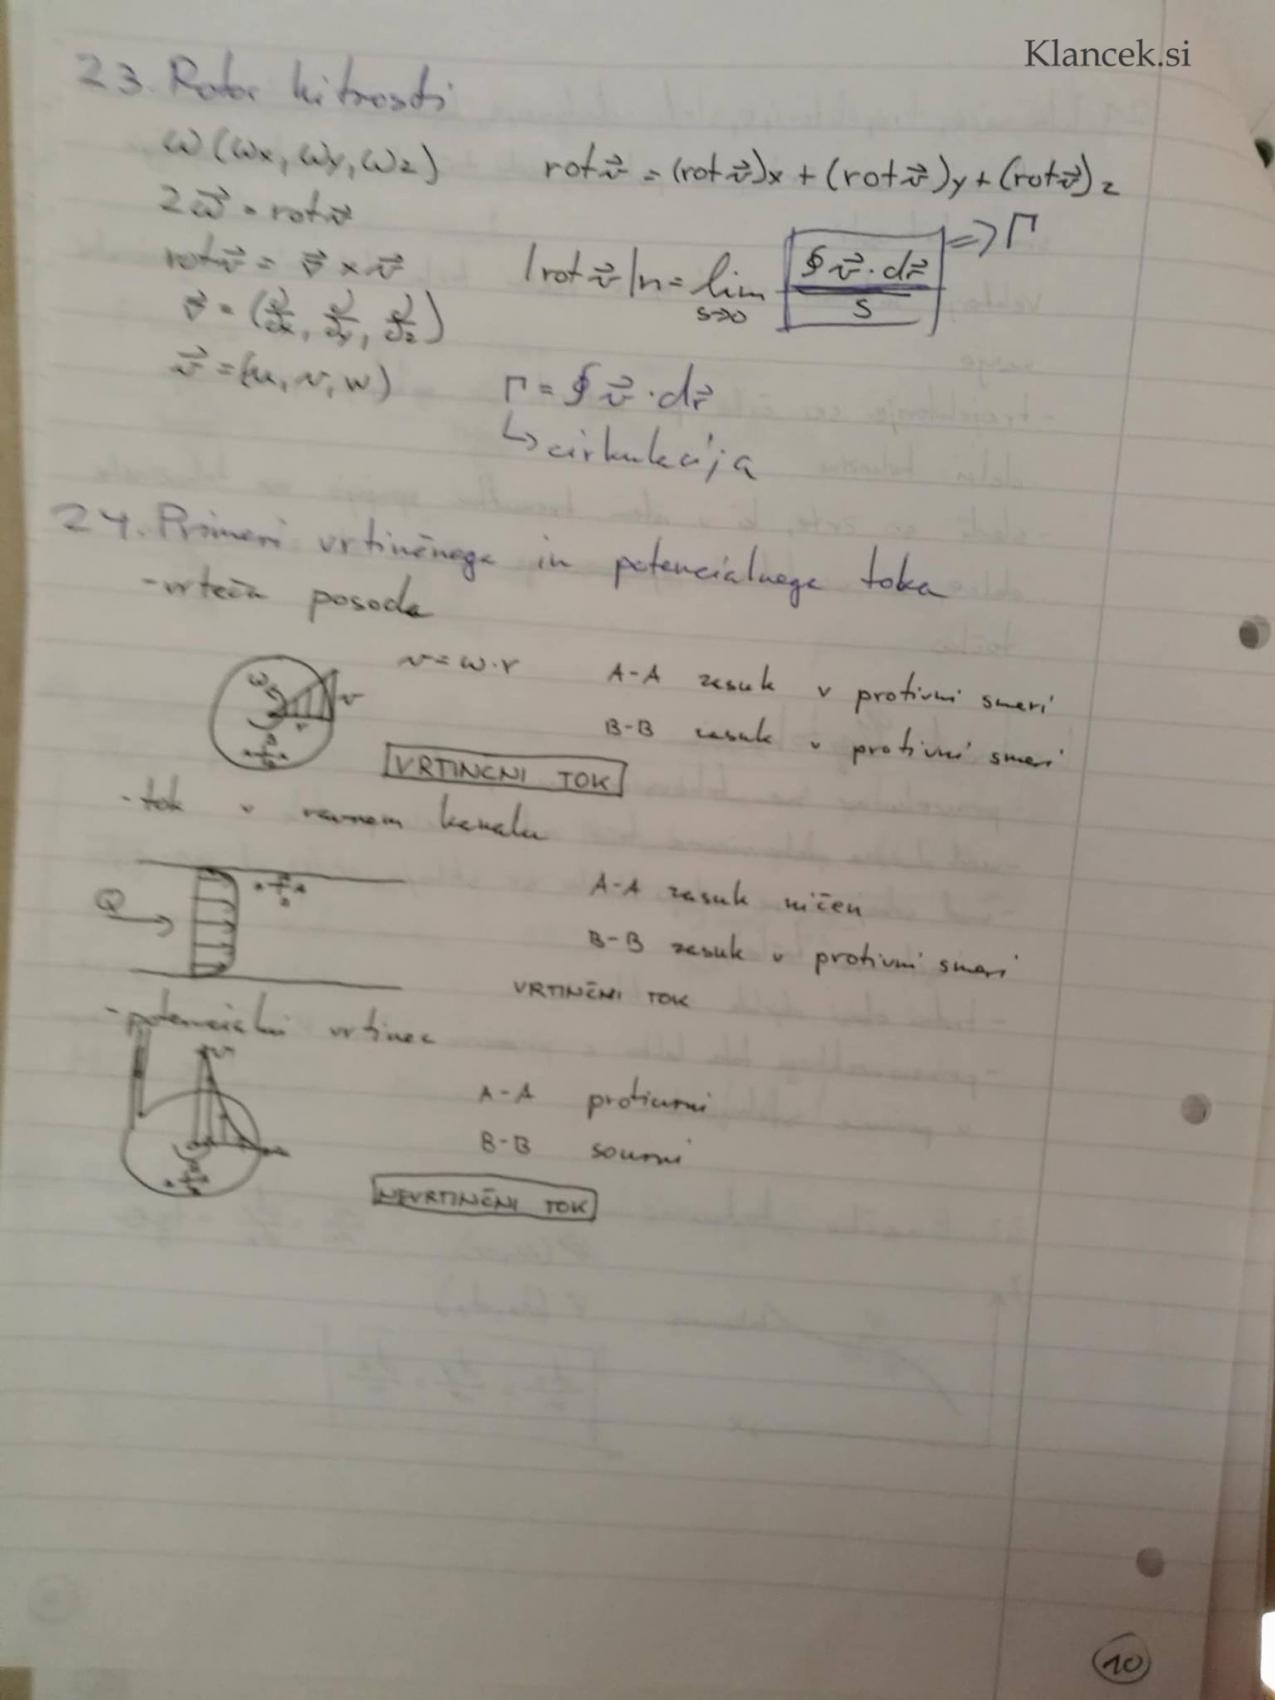 Klancek.si
23. Rotor hitrosti
ω(ωx, ωy, ωz)
rot v⃗ = (rot v⃗)x + (rot v⃗)y + (rot v⃗)z
2ω⃗ = rot v⃗
rot v⃗ = ∇⃗ × v⃗
|rot v⃗|n = lim s→0 ∮ v⃗ · dr⃗ / s => Γ
∇⃗ = (∂/∂x, ∂/∂y, ∂/∂z)
v⃗ = (u, v, w)
Γ = ∮ v⃗ · dr⃗
↳ cirkulacija
24. Primeri vrtinčnega in potencialnega toka
- vrteča posoda
v = ω · r
A-A zasuk v protivni smeri
B-B zasuk v protivni smeri
ω v r
VRTINČNI TOK
- tok v ravnem kanalu
A-A zasuk ničen
Q
B-B zasuk v protivni smeri
VRTINČNI TOK
- potencialni vrtinec
v
A-A protiurni
B-B sourni
NEVRTINČNI TOK
10